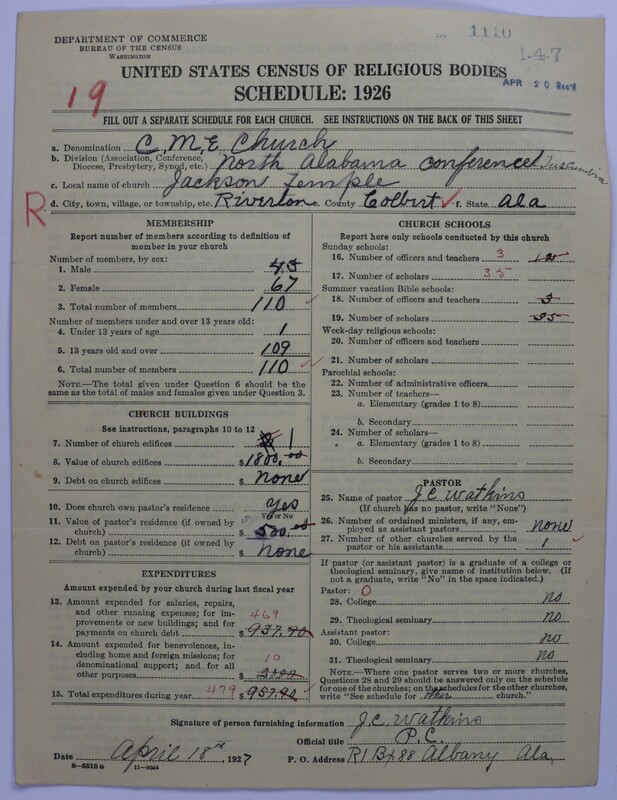 DEPARTMENT OF COMMERCE
BUREAU OF THE CENSUS
WASHINGTON
1120
1-4-7
UNITED STATES CENSUS OF RELIGIOUS BODIES
APR 20 Rec'd
SCHEDULE: 1926
19
FILL OUT A SEPARATE SCHEDULE FOR EACH CHURCH. SEE INSTRUCTIONS ON THE BACK OF THIS SHEET
a. Denomination C.M.E. Church
b. Division (Association, Conference, Diocese, Presbytery, Synod, etc.) North Alabama Conference Tuscumbia
c. Local name of church Jackson Temple
R
d. City, town, village, or township, etc. Riverton e. County Colbert ✓ f. State Ala
MEMBERSHIP
Report number of members according to definition of member in your church
Number of members, by sex:
1. Male 43
2. Female 67
3. Total number of members 110 ✓
Number of members under and over 13 years old:
4. Under 13 years of age 1
5. 13 years old and over 109
6. Total number of members 110 ✓
NOTE.—The total given under Question 6 should be the same as the total of males and females given under Question 3.
CHURCH BUILDINGS
See instructions, paragraphs 10 to 12
7. Number of church edifices 1
8. Value of church edifices $1800.00
9. Debt on church edifices $ none
10. Does church own pastor's residence yes
Yes or No
11. Value of pastor's residence (if owned by church) $ 500.00
12. Debt on pastor's residence (if owned by church) $ none
EXPENDITURES
Amount expended by your church during last fiscal year
13. Amount expended for salaries, repairs, and other running expenses; for improvements or new buildings; and for payments on church debt 469 $ 937.90
14. Amount expended for benevolences, including home and foreign missions; for denominational support; and for all other purposes 10 $
15. Total expenditures during year 479 $ 957.90 ✓
CHURCH SCHOOLS
Report here only schools conducted by this church
Sunday schools:
16. Number of officers and teachers 3
17. Number of scholars 35
Summer vacation Bible schools:
18. Number of officers and teachers 3
19. Number of scholars 35
Week-day religious schools:
20. Number of officers and teachers
21. Number of scholars
Parochial schools:
22. Number of administrative officers
23. Number of teachers—
a. Elementary (grades 1 to 8)
b. Secondary
24. Number of scholars—
a. Elementary (grades 1 to 8)
b. Secondary
PASTOR
25. Name of pastor J.C. Watkins
(If church has no pastor, write "None")
26. Number of ordained ministers, if any, employed as assistant pastors none
27. Number of other churches served by the pastor or his assistants 1 ✓
If pastor (or assistant pastor) is a graduate of a college or theological seminary, give name of institution below. (If not a graduate, write "No" in the space indicated.)
Pastor: 0
28. College no
29. Theological seminary no
Assistant pastor:
30. College no
31. Theological seminary no
NOTE.—Where one pastor serves two or more churches, Questions 28 and 29 should be answered only on the schedule for one of the churches; on the schedules for the other churches, write "See schedule for other church."
Signature of person furnishing information J.C. Watkins
Official title P.C.
Date April 18th, 1927
P. O. Address R1 Bx 88 Albany Ala.
8—5518 a 11—9034